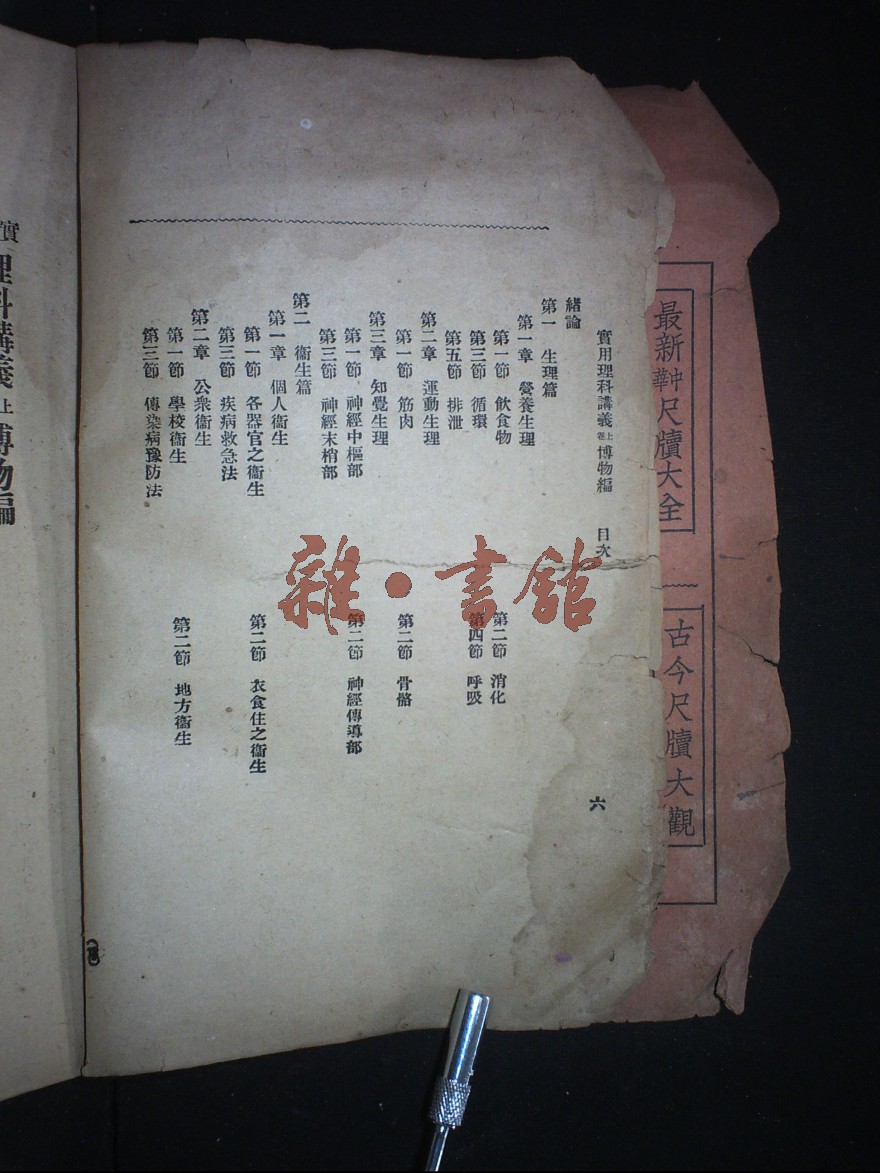 最新中華尺牘大全
古今尺牘大觀
實用理科講義 上卷 博物編 目次 六
緒論
第一 生理篇
第一章 營養生理
第一節 飲食物 第二節 消化
第三節 循環 第四節 呼吸
第五節 排泄
第二章 運動生理
第一節 筋肉 第二節 骨骼
第三章 知覺生理
第一節 神經中樞部 第二節 神經傳導部
第三節 神經末梢部
第二 衞生篇
第一章 個人衞生
第一節 各器官之衞生 第二節 衣食住之衞生
第三節 疾病救急法
第二章 公衆衞生
第一節 學校衞生 第二節 地方衞生
第三節 傳染病豫防法
實 理科講義 上 博物編
雜·書館